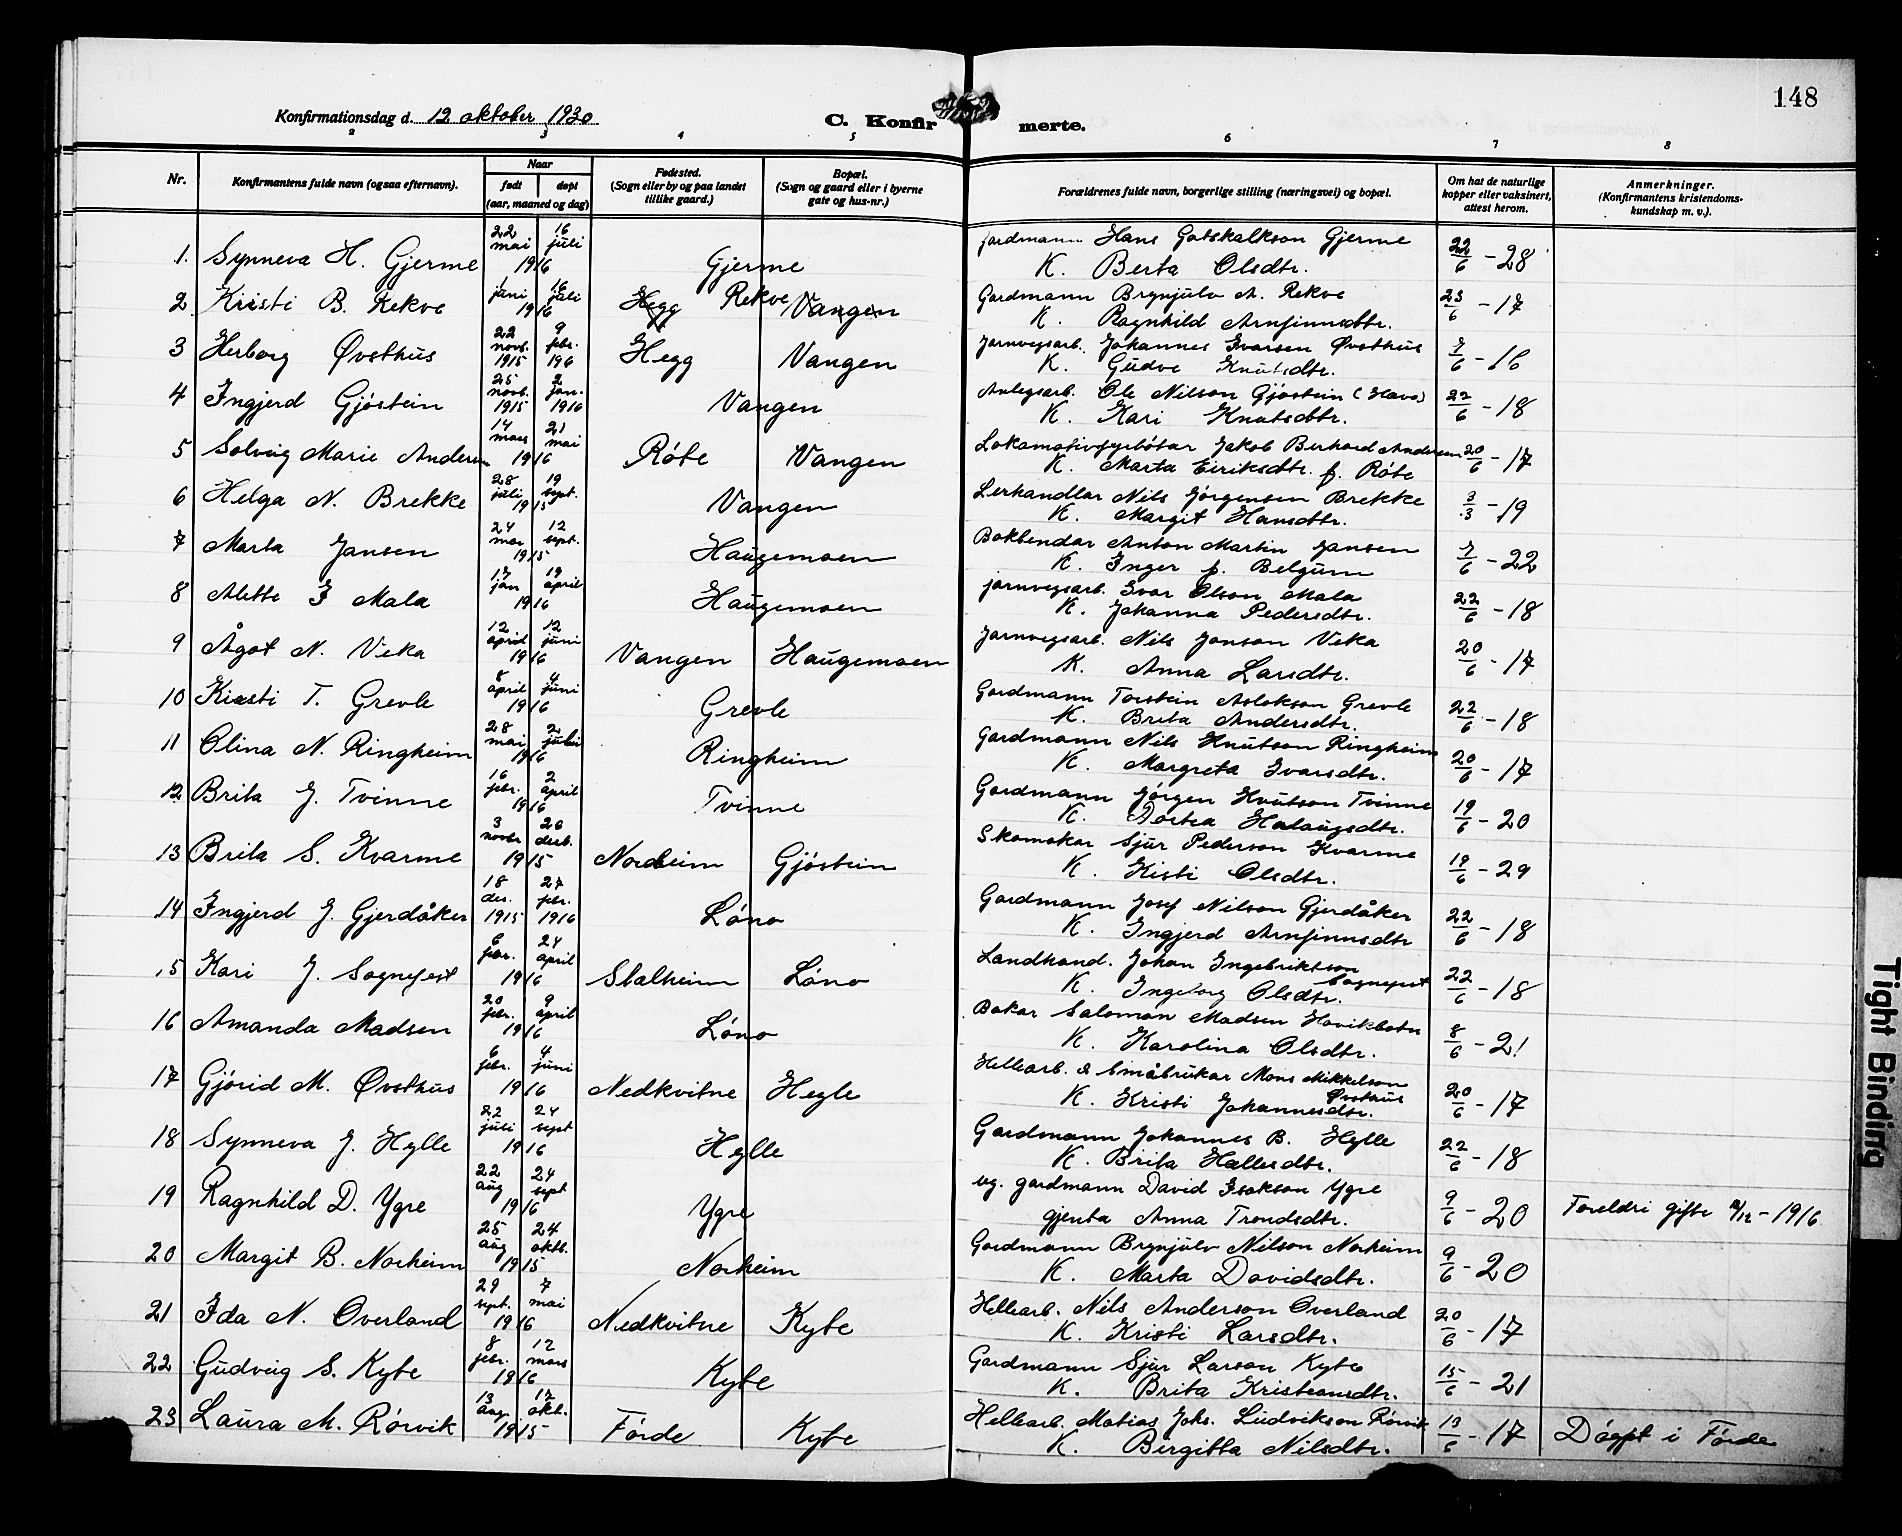 148
Konfirmationsdag d. 12 oktober 1930
C. Konfirmerte.
2 3 4 5 6 7 8
Nr. Konfirmantens fulde navn (ogsaa efternavn). Naar født døpt (aar, maaned og dag) Fødested. (Sogn eller by og paa landet tillike gaard.) Bopæl. (Sogn og gaard eller i byerne gate og hus-nr.) Forældrenes fulde navn, borgerlige stilling (næringsvei) og bopæl. Om hat de naturlige kopper eller vaksinert, attest herom. Anmerkninger. (Konfirmantens kristendoms-kundskap m. v.).
1. Synneva H. Gjerme 22 mai 16 juli 1916 Gjerme Gardmann Hans Gotskalkson Gjerme 22/6 - 28
K. Berta Olsdtr.
2 Kristi B. Rekve 1 juni 16 juli 1916 Hegg Rekve Vangen Gardmann Brynjulv A. Rekve 23/6 - 17
K. Ragnhild Arnfinnsdtr.
3 Herborg Øvsthus 22 novb. 1915 9 febr. 196 Hegg Vangen Jarnvegsarb. Johannes Ivarsen Øvsthus 7/6 - 16
K. Gudve Knutsdtr.
4 Ingjerd Gjøstein 25 novb. 1915 2 jan. 1916 Vangen Anlegsarb. Ole Nilson Gjøstein (Hævo) 22/6 - 18
K. Kari Knutsdtr.
5 Solveig Marie Andersen 14 mars 21 mai 1916 Røte Vangen Lokomotivfyrbøtar Jakob Berhard Andersen 20/6 - 17
K. Marta Eiriksdtr. f. Røte
6 Helga N. Brekke 28 juli 19 sept. 1915 Vangen Lerhandlar Nils Jørgensen Brekke 3/3 - 19
K. Margit Hansdtr.
7 Marta Jansen 24 mai 12 sept. 1915 Haugemoen Bokbendar Anton Martin Jansen 7/6 - 22
K. Inger f. Belgum
8 Alette I Mala 17 jan 19 april 1916 Haugemoen jarnvegsarb. Ivar Olson Mala 22/6 - 18
K. Johanna Pedersdtr.
9 Ågot N. Veka 12 april 12 juni 1916 Vangen Haugemoen Jarnvegsarb. Nils Jonson Veka 20/6 - 17
K. Anna Larsdtr.
10 Kirsti T. Grevle 8 april 4 juni 1916 Grevle Gardmann Torstein Aslakson Grevle 22/6 - 18
K. Brita Andersdtr.
11 Olina N. Ringheim 28 mai 2 juli 1916 Ringheim Gardmann Nils Knutson Ringheim 20/6 - 17
K. Margreta Ivarsdtr.
12 Brita J. Tvinne 16 febr. 2 april 1916 Tvinne Gardmann Jørgen Knutson Tvinne 19/6 - 20
K. Dortea
13 Brita S. Kvarme 3 novbr 26 desb. 1915 Nordheim Gjøstein Skomakar Sjur Pederson Kvarme 19/6 - 29
K. Kisti Olsdtr.
14 Ingjerd J. Gjerdåker 18 des. 1915 27 febr. 1916 Løno Gardmann Josef Nilson Gjerdåker 22/6 - 18
K. Ingjerd Arnfinnsdtr
15 Kari J. Sognefest 6 febr. 24 april 1916 Stalheim Løno Landhand. Johan Ingebriktson Sognefest 22/6 - 18
K. Ingeborg Olsdtr.
16 Amanda Madsen 20 febr. 9 april 1916 Løno Bakar Salomon Madsen Havikbotn 8/6 - 21
K. Karolina Olsdtr.
17 Gjørid M. Øvsthus 6 febr. 4 juni 1916 Nedkvitne Hegle Hellearb. & Småbrukar Mons Mikkelson Øvsthus 20/6 - 17
K. Kristi Johannesdtr.
18 Synneva J. Hylle 22 juli 24 sept 1916 Hylle Gardmann Johannes B. Hylle 22/6 - 18
K. Brita Hallesdtr.
19 Ragnhild D. Ygre 22 aug 24 sept 1916 Ygre ug. gardmann David Isakson Ygre 9/6 - 20 Foreldri gifte /12 - 1916
gjenta Anna Trondsdtr.
20 Margit B. Norheim 25 aug 24 oktb. 1915 Norheim Gardmann Brynjulv Nilson Norheim 9/6 - 20
K. Marta Davidsdtr.
21 Ida N. Overland 29 sept. 7 mai 1916 Nedkvitne Kyte Hellearb. Nils Anderson Overland 20/6 - 17
K. Kristi Larsdtr.
22 Gudveig S. Kyte 8 febr. 12 mars 1916 Kyte Gardmann Sjur Larson Kyte 15/6 - 21
K. Brita Kristensdtr.
23 Laura M. Rørvik 13 aug 17 okt. 1915 Førde Kyte Hellearb. Matias Johs. Ludvikson Rørvik 13/6 - 17 Døypt i Førde
K. Birgitta Nilsdtr.
Tight Binding